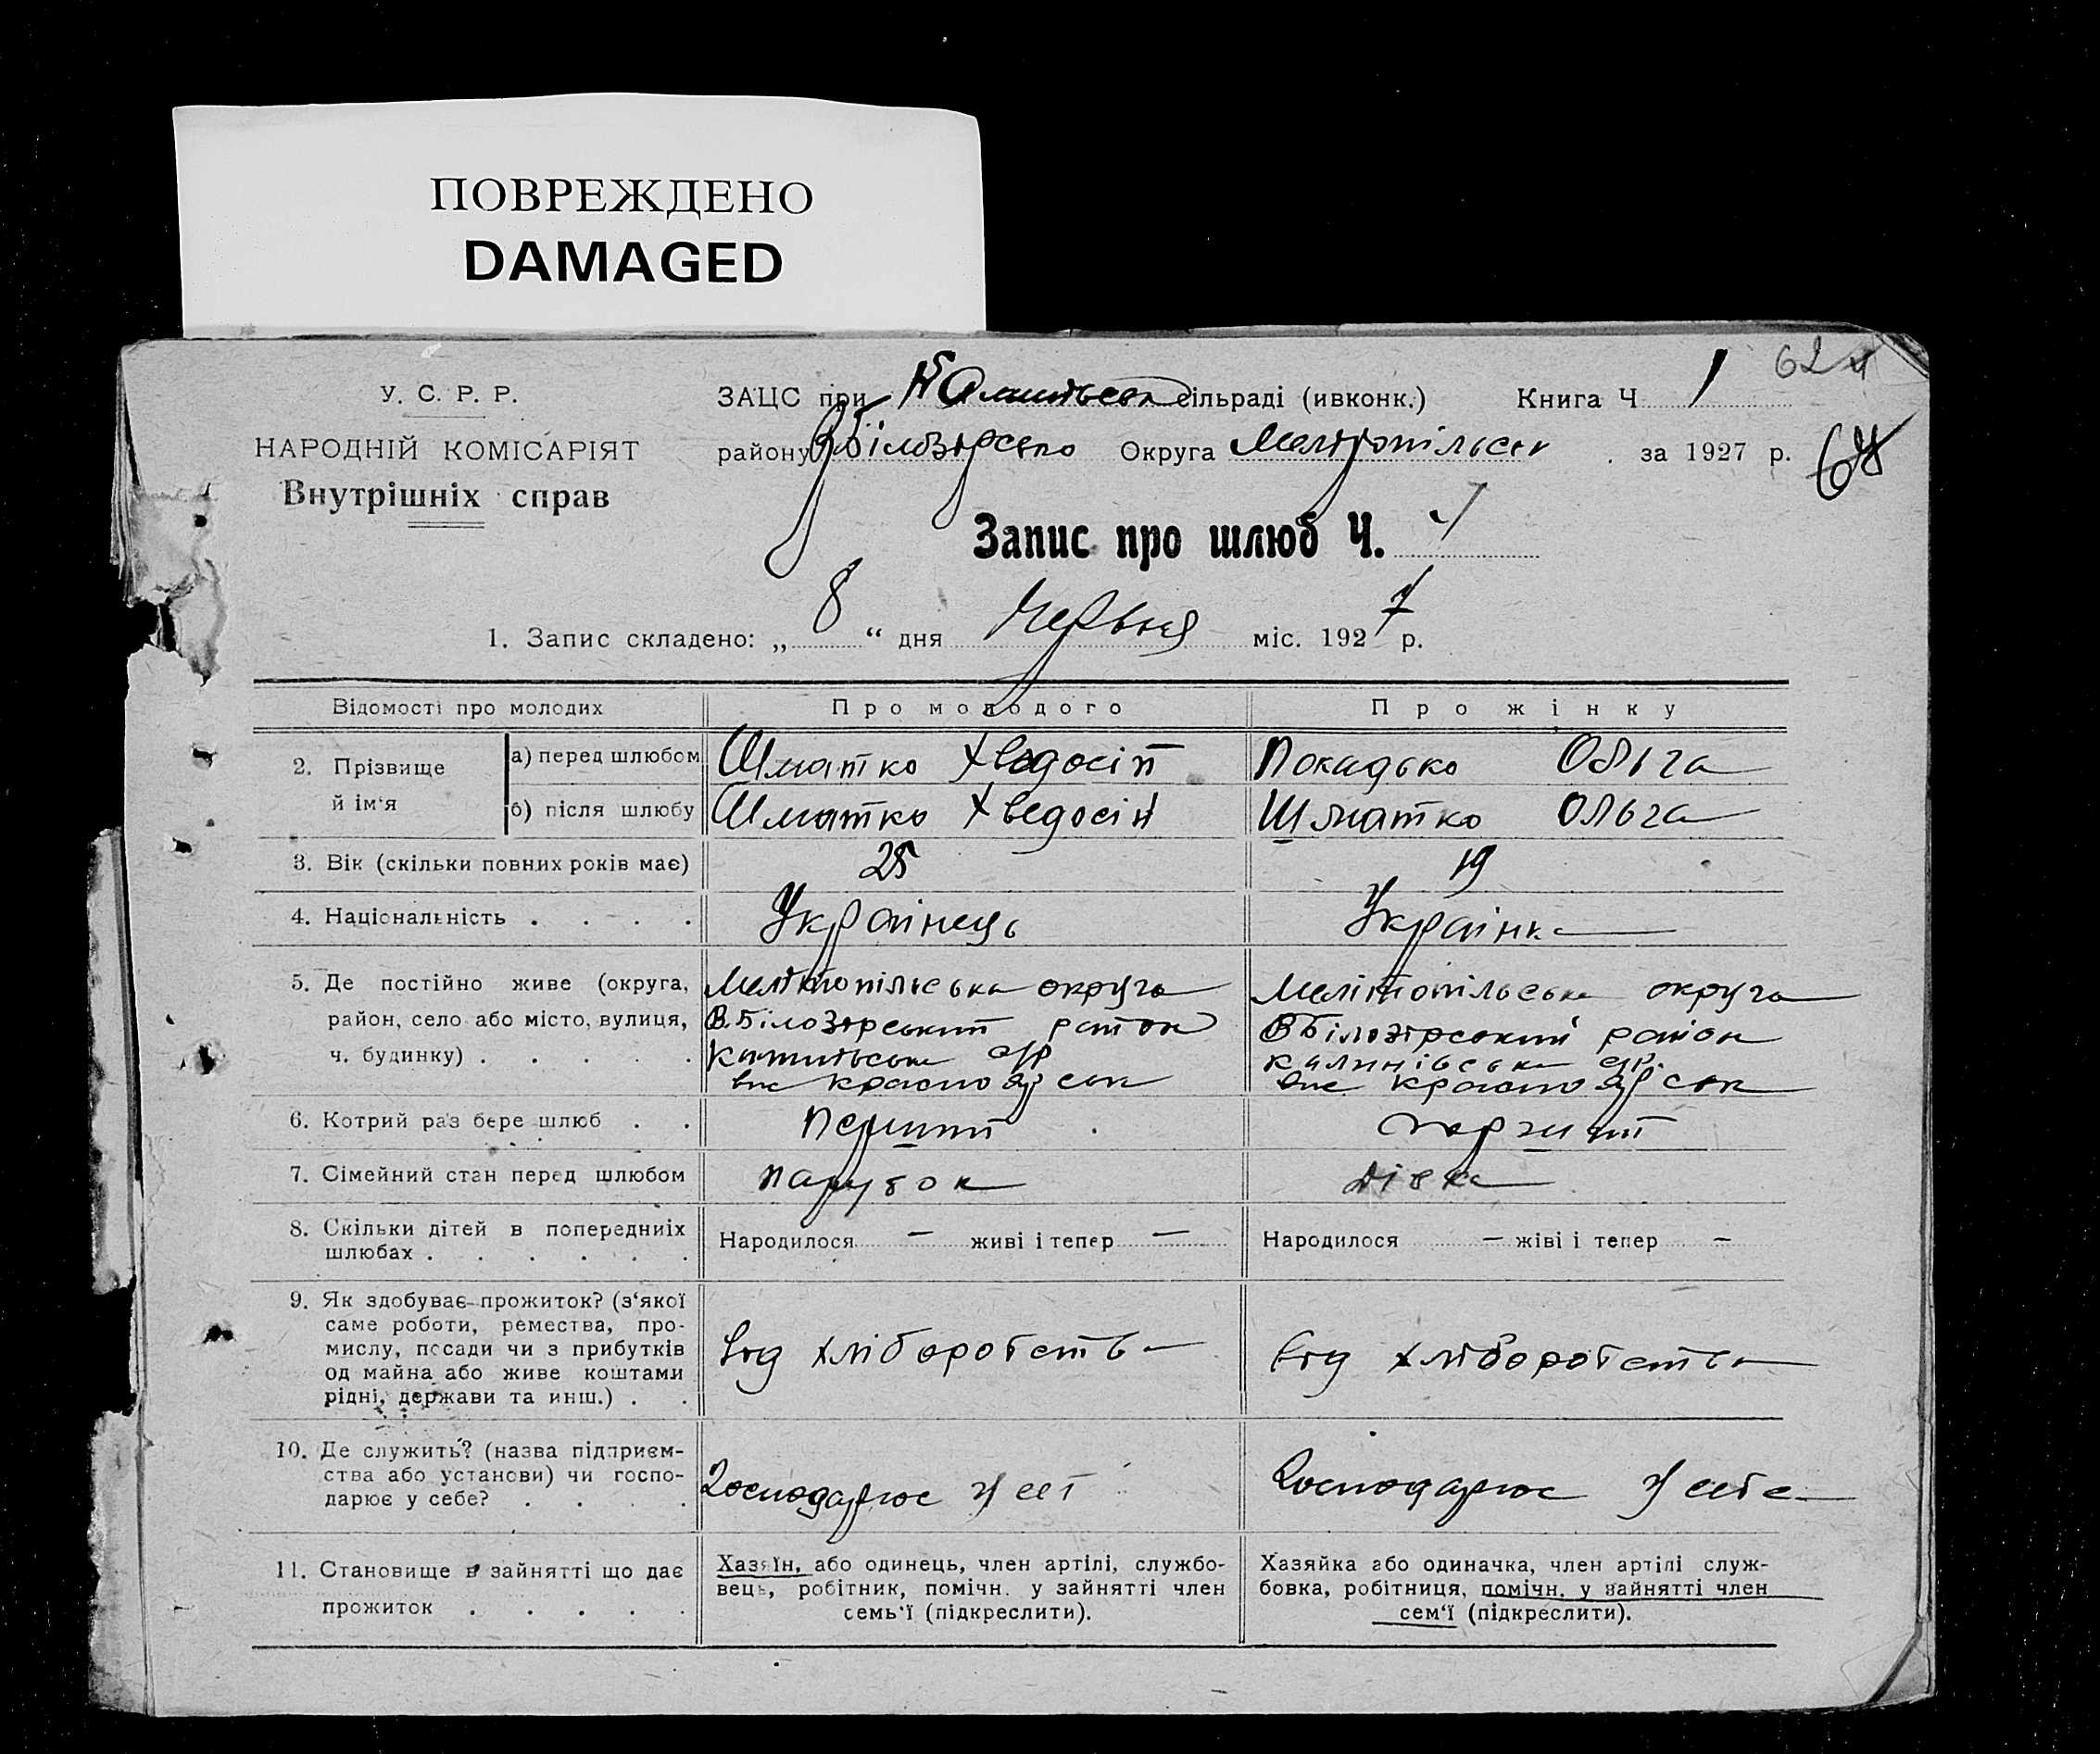 ПОВРЕЖДЕНО
DAMAGED
У. С. Р. Р.
НАРОДНІЙ КОМІСАРІЯТ
Внутрішніх справ
ЗАЦС при сільраді (ивконк.) Книга Ч 1
62
району В Білозірсько Округа Мелітопільськ . за 1927 р.
Запис про шлюб Ч.
1. Запис складено: „ 8 “ дня червня міс. 1927 р.
Відомості про молодих Про молодого Про жінку
2. Прізвище й ім‘я
а) перед шлюбом Шматко Хведосій Покадько Ольга
б) після шлюбу Шматко Хведосій Шматко Ольга
3. Вік (скільки повних років має) 25 19
4. Національність . . . . Українець Українка
5. Де постійно живе (округа, Мелітопільська округа Мелітопільська округа
район, село або місто, вулиця, В.Білозірський район ВБілозірський район
ч. будинку) . . . . . с/р Калинівська с/р.
вис Красноярськ вис Красноярськ
6. Котрий раз бере шлюб . . Перший перший
7. Сімейний стан перед шлюбом парубок дівка
8. Скільки дітей в попередниіх
шлюбах . . . . . . Народилося – живі і тепер – Народилося – жіві і тепер –
9. Як здобуває прожиток? (з‘якої
саме роботи, ремества, про-
мислу, посади чи з прибутків
од майна або живе коштами
рідні, держави та инш.) . .
від хліборобства від хліборобства
10. Де служить? (назва підприєм-
ства або установи) чи госпо-
дарює у себе? . . . .
Господарює у себе Господарює у себе
11. Становище в зайнятті що дає
прожиток . . . . .
Хазяїн, або одинець, член артілі, службо-
вець, робітник, помічн. у зайнятті член
семь‘ї (підкреслити).
Хазяйка або одиначка, член артілі служ-
бовка, робітниця, помічн. у зайнятті член
сем‘ї (підкреслити).